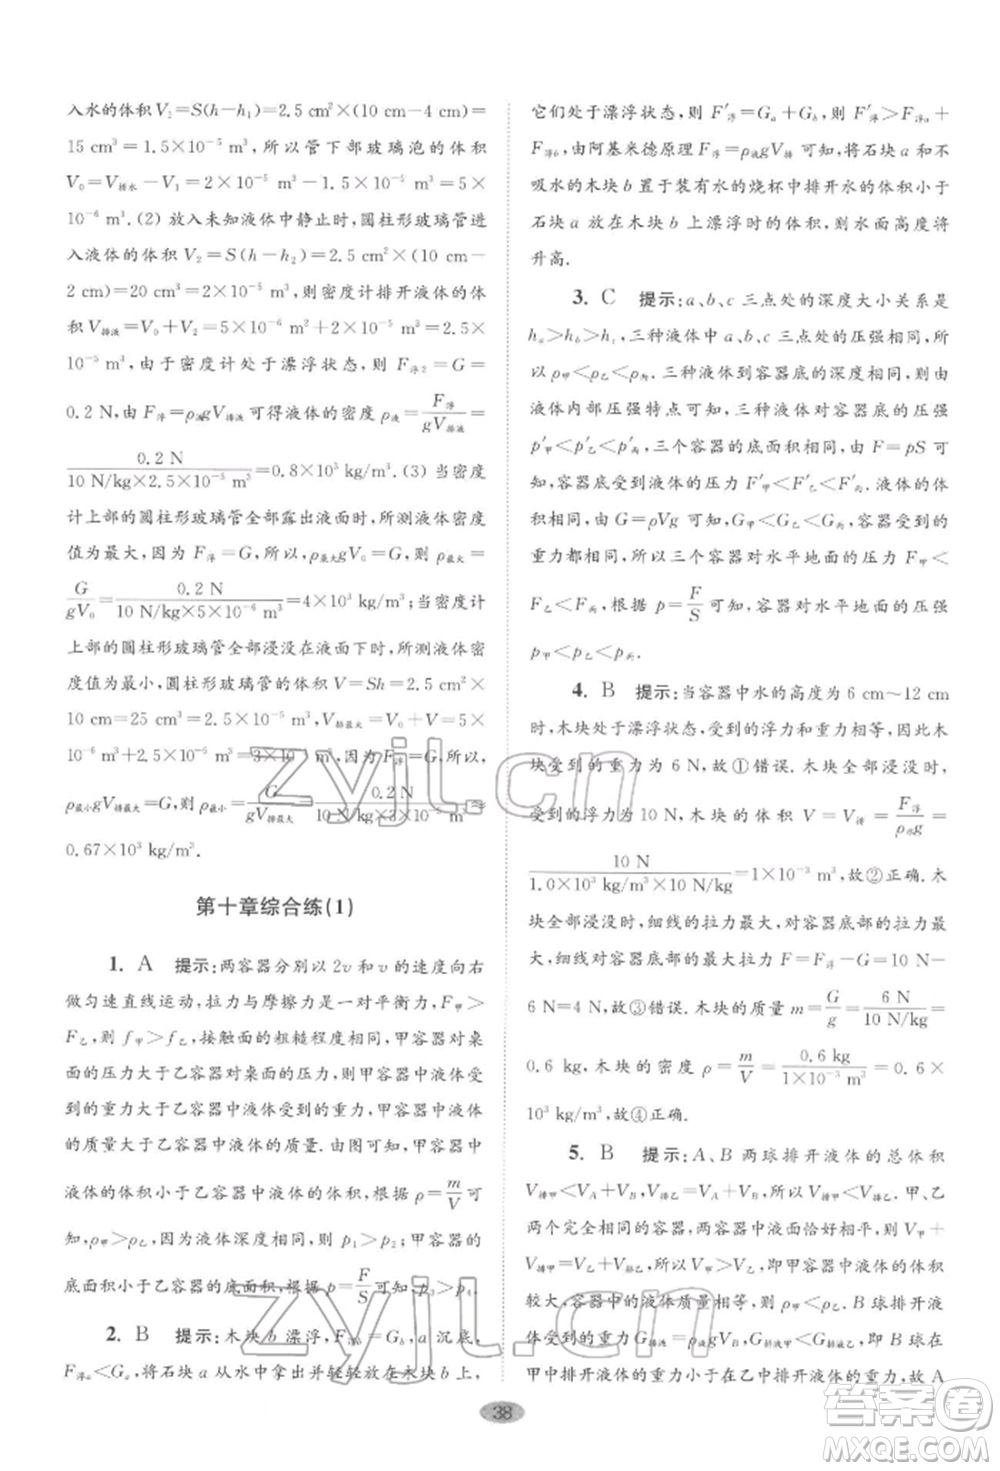 入水的体积 V₂=S(h-h₁)=2.5 cm²×(10 cm-4 cm)=
15 cm³=1.5×10⁻⁵ m³,所以管下部玻璃泡的体积
V₀=V排水-V₁=2×10⁻⁵ m³-1.5×10⁻⁵ m³=5×
10⁻⁶ m³.(2) 放入未知液体中静止时,圆柱形玻璃管进
入液体的体积 V₂=S(h-h₂)=2.5 cm²×(10 cm-
2 cm)=20 cm³=2×10⁻⁵ m³,则密度计排开液体的体
积 V排液=V₀+V₂=5×10⁻⁶ m³+2×10⁻⁵ m³=2.5×
10⁻⁵ m³,由于密度计处于漂浮状态,则 F浮2=G=
0.2 N,由 F浮=ρ液gV排液可得液体的密度 ρ液=F浮/gV排液=
0.2 N/10 N/kg×2.5×10⁻⁵ m³=0.8×10³ kg/m³.(3) 当密度
计上部的圆柱形玻璃管全部露出液面时,所测液体密度
值为最大,因为 F浮=G,所以,ρ最大gV₀=G,则 ρ最大=
G/gV₀=0.2 N/10 N/kg×5×10⁻⁶ m³=4×10³ kg/m³;当密度计
上部的圆柱形玻璃管全部浸没在液体中时,所测液体密
度值为最小,圆柱形玻璃管的体积 V=Sh=2.5 cm²×
10 cm=25 cm³=2.5×10⁻⁵ m³,V排最大=V₀+V=5×
10⁻⁶ m³+2.5×10⁻⁵ m³=3×10⁻⁵ m³,F浮=G,所以,
ρ最小gV排最大=G,则 ρ最小=G/gV排最大=0.2 N/10 N/kg×3×10⁻⁵ m³≈
0.67×10³ kg/m³.
第十章综合练(1)
1. A 提示:两容器分别以 2v 和 v 的速度向右
做匀速直线运动,拉力与摩擦力是一对平衡力,F甲>
F乙,则 f甲>f乙,接触面的粗糙程度相同,甲容器对桌面
的压力大于乙容器对桌面的压力,则甲容器中液体受
到的重力大于乙容器中液体受到的重力,甲容器中液体
的质量大于乙容器中液体的质量.由图可知,甲容器中
液体的体积小于乙容器中液体的体积,根据 ρ=m/V可
知,ρ甲>ρ乙,液体深度相同,则 p₁>p₂;甲容器的
底面积小于乙容器的底面积,根据 p=F/S可知,p₃>p₄.
2. B 提示:木块 b 漂浮,F浮b=Gb,a 沉底,
F浮a<Ga,将石块 a 从水中捞出并轻轻放在木块 b 上,
它们处于漂浮状态,则 F′浮=Ga+Gb,则 F′浮>F浮a+
F浮b,由阿基米德原理 F浮=ρ液gV排可知,将石块 a 和不
吸水的木块 b 置于装有水的烧杯中排开水的体积小于
石块 a 放在木块 b 上漂浮时的体积,则水面高度将
升高.
3. C 提示:a、b、c 三点处的深度大小关系是
ha>hb>hc,三种液体中 a、b、c 三点处的压强相同,所
以 ρ甲<ρ乙<ρ丙.三种液体到容器底的深度相同,由
液体内部压强特点可知,三种液体对容器底的压强
p′甲<p′乙<p′丙,三个容器的底面积相同,由 F=pS 可
知,容器底受到液体的压力 F′甲<F′乙<F′丙.液体的体
积相同,由 G=ρVg 可知,G甲<G乙<G丙,容器受到的
重力都相同,所以三个容器对水平地面的压力 F甲<
F乙<F丙,根据 p=F/S可知,容器对水平地面的压强
p甲<p乙<p丙.
4. B 提示:当容器中水的高度为 6 cm~12 cm
时,木块处于漂浮状态,受到的浮力和重力相等,因此木
块受到的重力为 6 N,故①错误.木块全部浸没时,
受到的浮力为 10 N,木块的体积 V=V排=F浮/ρ水g=
10 N/1.0×10³ kg/m³×10 N/kg=1×10⁻³ m³,故②正确.木
块全部浸没时,细线的拉力最大,对容器底部的拉力最
大,木块对容器底部的最大拉力 F=F浮-G=10 N-
6 N=4 N,故③错误.木块的质量 m=G/g=6 N/10 N/kg=
0.6 kg,木块的密度 ρ=m/V=0.6 kg/1×10⁻³ m³=0.6×
10³ kg/m³,故④正确.
5. B 提示:A、B 两球排开液体的总体积
V排甲<VA+VB,V排乙=VA+VB,所以 V排甲<V排乙.甲、乙
两个完全相同的容器,两容器中液面恰好相平,V甲+
V排甲=V乙+V排乙,所以 V甲>V乙,即甲容器中液体体积
较大,容器对液体密度相等,所以 G甲>G乙;B 球排开液
体的重力 G排液=ρ液gV排液=ρ液gVB,G排液甲=G排液乙,即 B 球在
甲中排开液体的重力小于在乙中排开液体的重力,故 A
38
zyjl.cn
zyjl.cn
答案圈
MXQE.COM